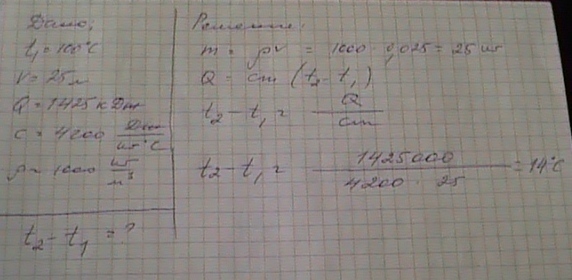 Дано:
t₁ = 100°C
V = 25л
Q = 1425 кДж
c = 4200 Дж/кг°C
ρ = 1000 кг/м³
t₂ - t₁ = ?
Решение:
m = ρV = 1000 · 0,025 = 25 кг
Q = cm (t₂ - t₁)
t₂ - t₁ = Q/cm
t₂ - t₁ = 1425000/4200 · 25 = 14°C